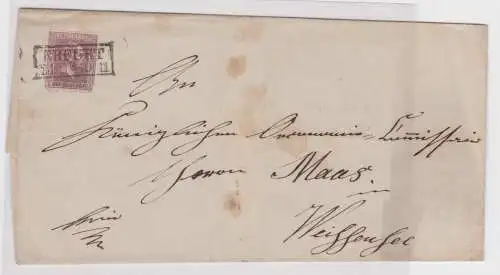 ERFURT
An
Königlichen Oeconomie-Commissair
Herrn Maas
in
Weissensee